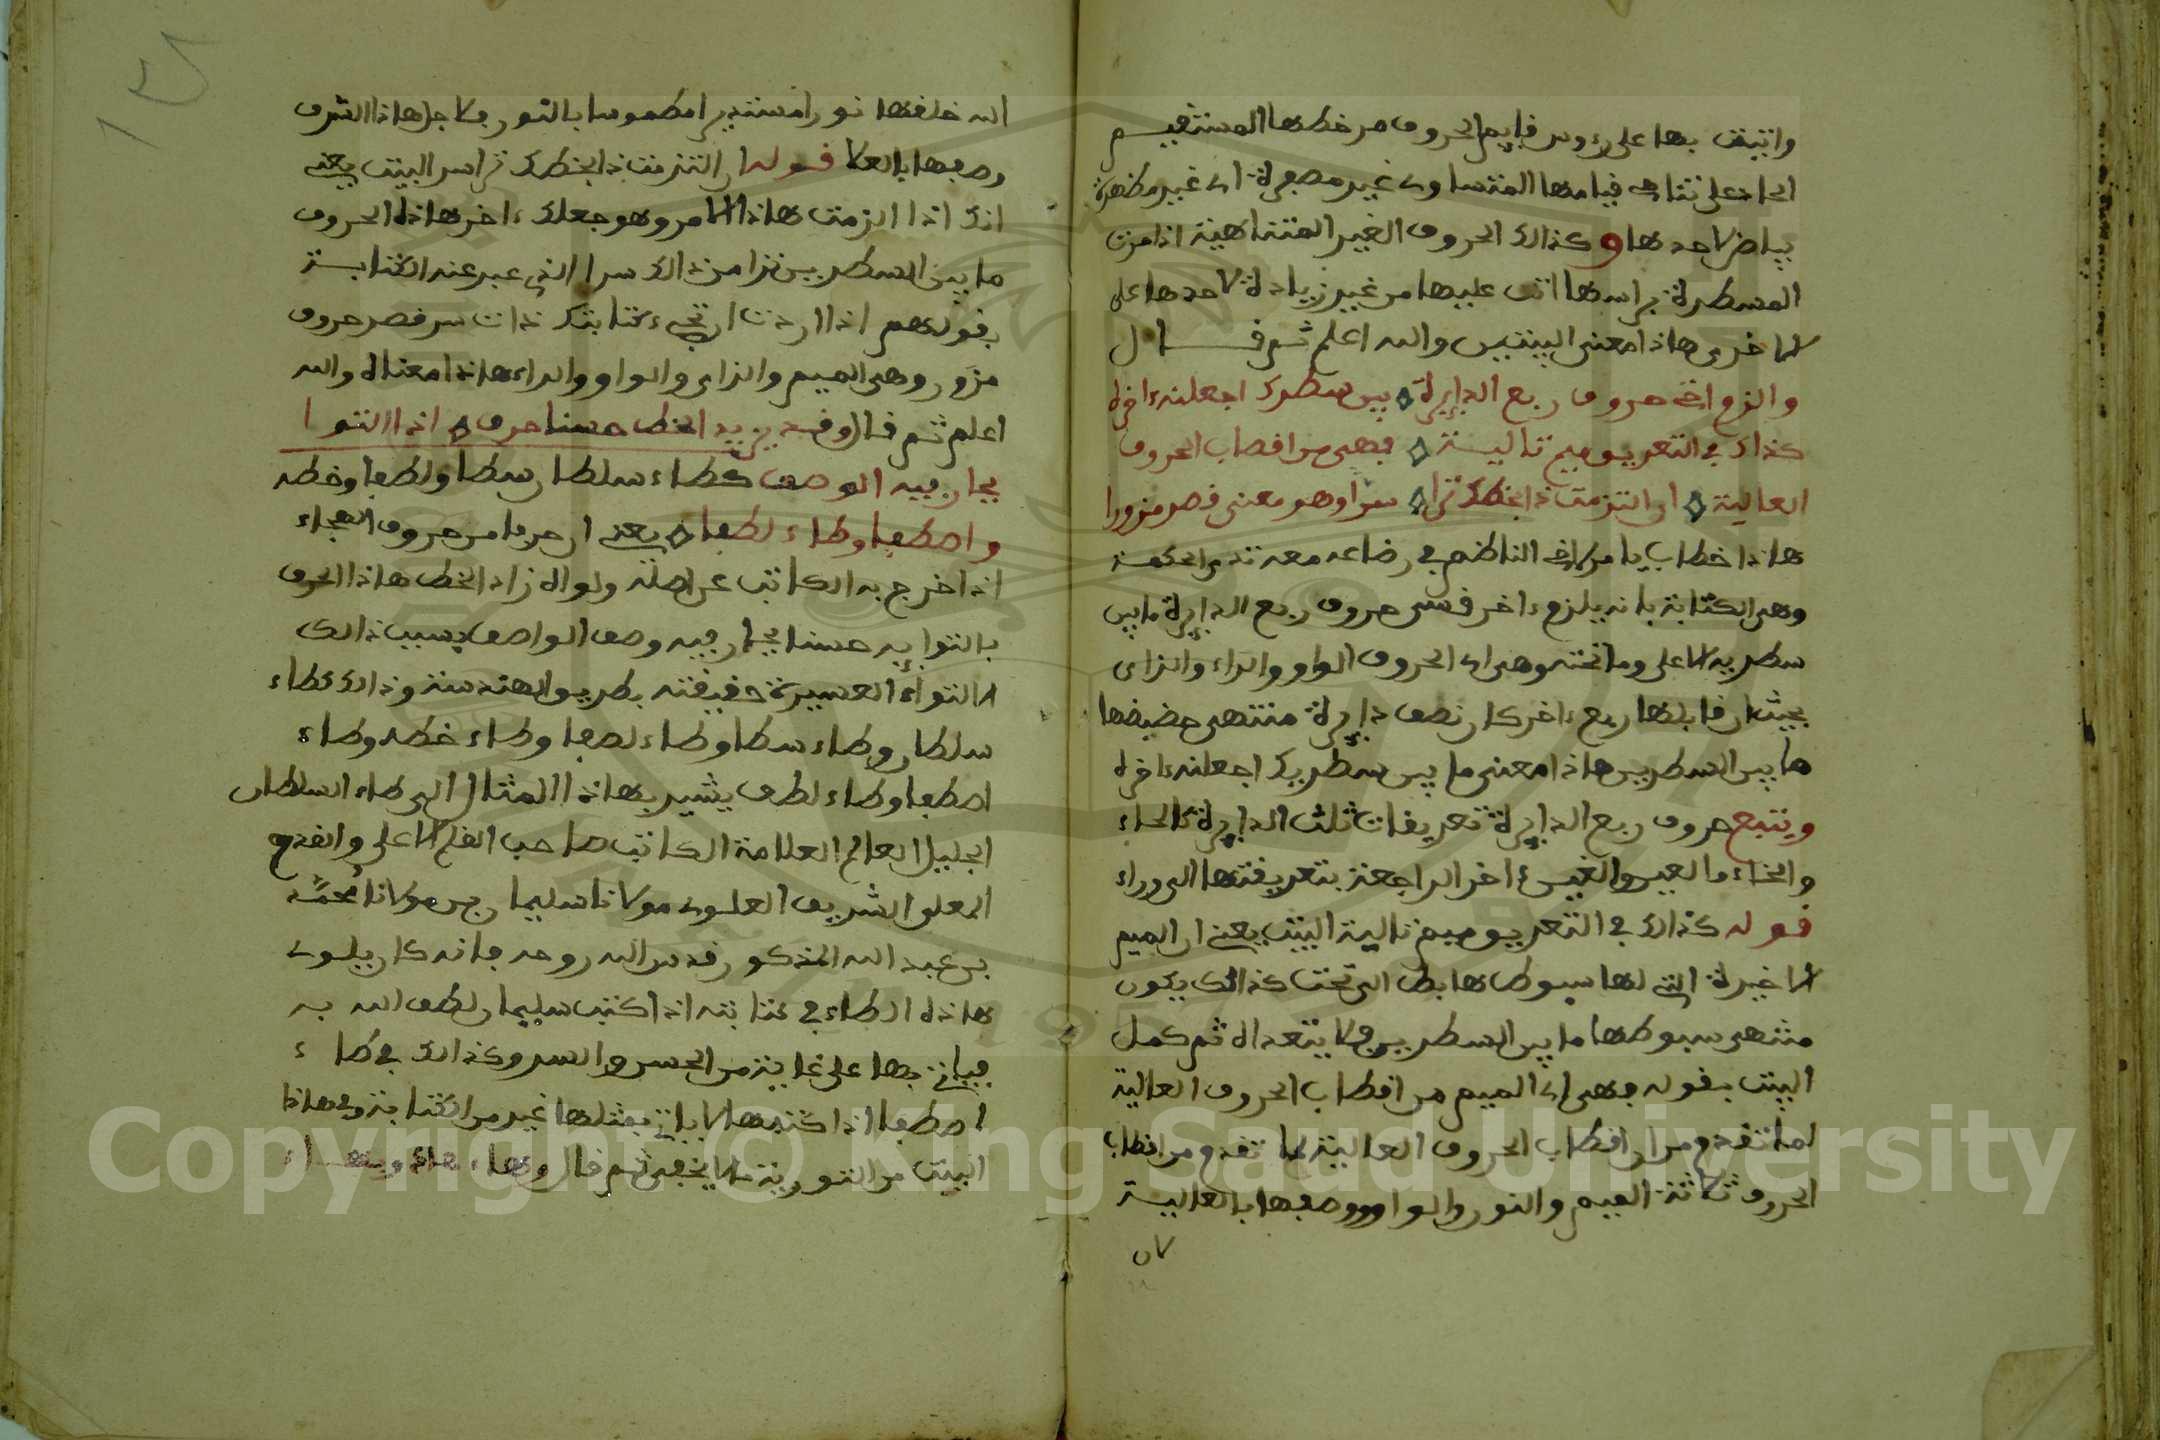 واتيت بها على رءوس قايم الحروف من خطها المستقيم
الحاد على تناهى قيامها المتساوى غير مصبرة اى غير مظهرة
بياض لاحدها وكذالك الحروف الغير المتناهية اذا مرت
المسطرة براسها اتى عليها من غير زيادة لاحدها على
الاخرى هاذا معنى البيتين والله اعلم ثم قال
والزم اخى حروف ربع الدايرة بين سطرك اجعلنه ءاخره
كذاك في التعريق ميم تاليـة فهى من اقطاب الحروف
العالية ان التزمت ذا بخطك ترا سرا وهو معنى قصر مزورا
هاذا خطاب يامر اخى الناظم في رضاعه معه ثدي الحكمة
وهى الكتابة بانه يلزم ءاخر قسى حروف ربع الدايرة ما بين
سطريه الاعلى وما تحته وهى اى الحروف الواو والراء والزاى
بحيث ان قابلها ربع ءاخر كان نصف دايرة منتهى حضيضها
ما بين السطرين هاذا معنى ما بين سطريك اجعلنه ءاخره
ويتبع حروف ربع الدايرة تعريفات ثلث الدايرة كالحاء
والخاء والعين والغين ءاخر الراجعة بتعريفتها الى وراء
قوله كذاك في التعريق ميم تالية البيت يعنى ان الميم
الاخيرة التي لها سبوطا هابطا الى تحت كذالك يكون
منتهى سبوطها ما بين السطرين ولا يتعداه ثم كمل
البيت بقوله وهى اى الميم من اقطاب الحروف العالية
لما تقدم من ان اقطاب الحروف العالية لما تقدم من اقطاب
الحروف ثلاثة الميم والنون والواو ووصفها بالعالية
لان
الله خلقها نورا مستديرا مطموسا بالنور ولاجل هاذا الشرف
وصفها بالعلا قوله ان التزمت ذا بخطك تراسر البيت يعنى
انك اذا الزمت هاذا الامر وهو جعلك ءاخر هاذه الحروف
ما بين السطرين ترا من ذالك سرا الذي عبر عنه الكتابـة
بقولهم اذا اردت ان تجي ءكتابتك ذات سر فصر حروف
مزور وهى الميم والزاى والواو والراء هاذا معناه والله
اعلم ثم قال وقد يزيد الخط حسنا حرف اذا التوا
يحار فيه الوصف كطاء سلطان سطا ولطفا وخطه
واصطفا وطاء لطفا يعنى ان حرفا من حروف الهجاء
اذا خرج به الكاتب عن اصله ولواه زاد الخط هاذا الحرف
بالتوايه حسنا يحار فيه وصف الواصف بسبب ذالك
الالتواء العسيرة حقيقته بطريق الهندسة وذالك كطاء
سلطان وطاء سطا وطاء لطفا وطاء خطه وطاء
اصطفا وطاء لطف يشير بهاذا المثال الى طاء السلطان
الجليل العالم العلامة الكاتب صاحب القلم الاعلى والقدم
المعلى الشريف العلوى مولانا سليمان بن مولانا محمد
بن عبد الله المذكور قدس الله روحه فانه كان يلوى
هاذه الطاء في كتابته اذا كتب سليمان لطف الله به
فيأتي بها على غاية من الحسن والسر وكذالك في طاء
اصطفا اذا كتبها لا ياتي بمثلها غيره من الكتابة وفي هاذا
البيت من التورية ما لا يخفى ثم قال وهاء